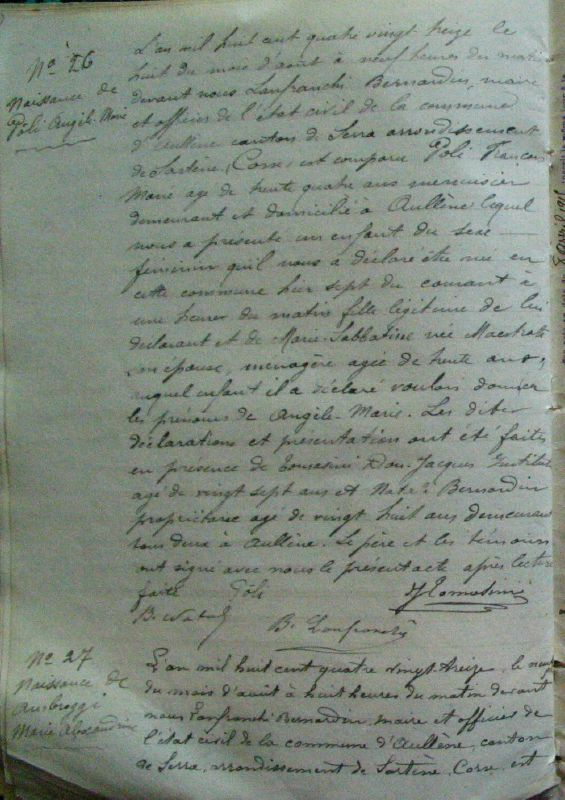 N° 26
Naissance de
Poli Angèle Marie
L'an mil huit cent quatre vingt treize le
huit du mois d'août à neuf heures du matin
devant nous Lanfranchi Bernardin, maire
et officier de l'état civil de la commune
d'Aullène canton de Serra arrondissement
de Sartène, Corse, est comparu Poli François
Marie age de trente quatre ans menuisier
demeurant et domicilié à Aullène lequel
nous a présenté un enfant du sexe —
féminin qu'il nous a déclaré être née en
cette commune hier sept du courant à
une heure du matin fille légitime de lui
déclarant et de Marie Sabbatine née Maestrati
son épouse, ménagère agée de trente ans,
auquel enfant il a déclaré vouloir donner
les prénoms de Angèle-Marie. Les dites
déclarations et présentation ont été faites
en présence de Tomasini Don Jacques Institut
agé de vingt sept ans et Bernardin
propriétaire agé de vingt huit ans demeurant
tous deux à Aullène. Le père et les témoins
ont signé avec nous le present acte après lecture
faite Poli J Tomasini
B. Natali
B. Lanfranchi
N° 27
Naissance de
Ambroggi
Marie Alexandrine
L'an mil huit cent quatre vingt-treize, le neuf
du mois d'août à huit heures du matin devant
nous Lanfranchi Bernardin, maire et officier de
l'état civil de la commune d'Aullène, canton
de Serra, arrondissement de Sartène, Corse, est